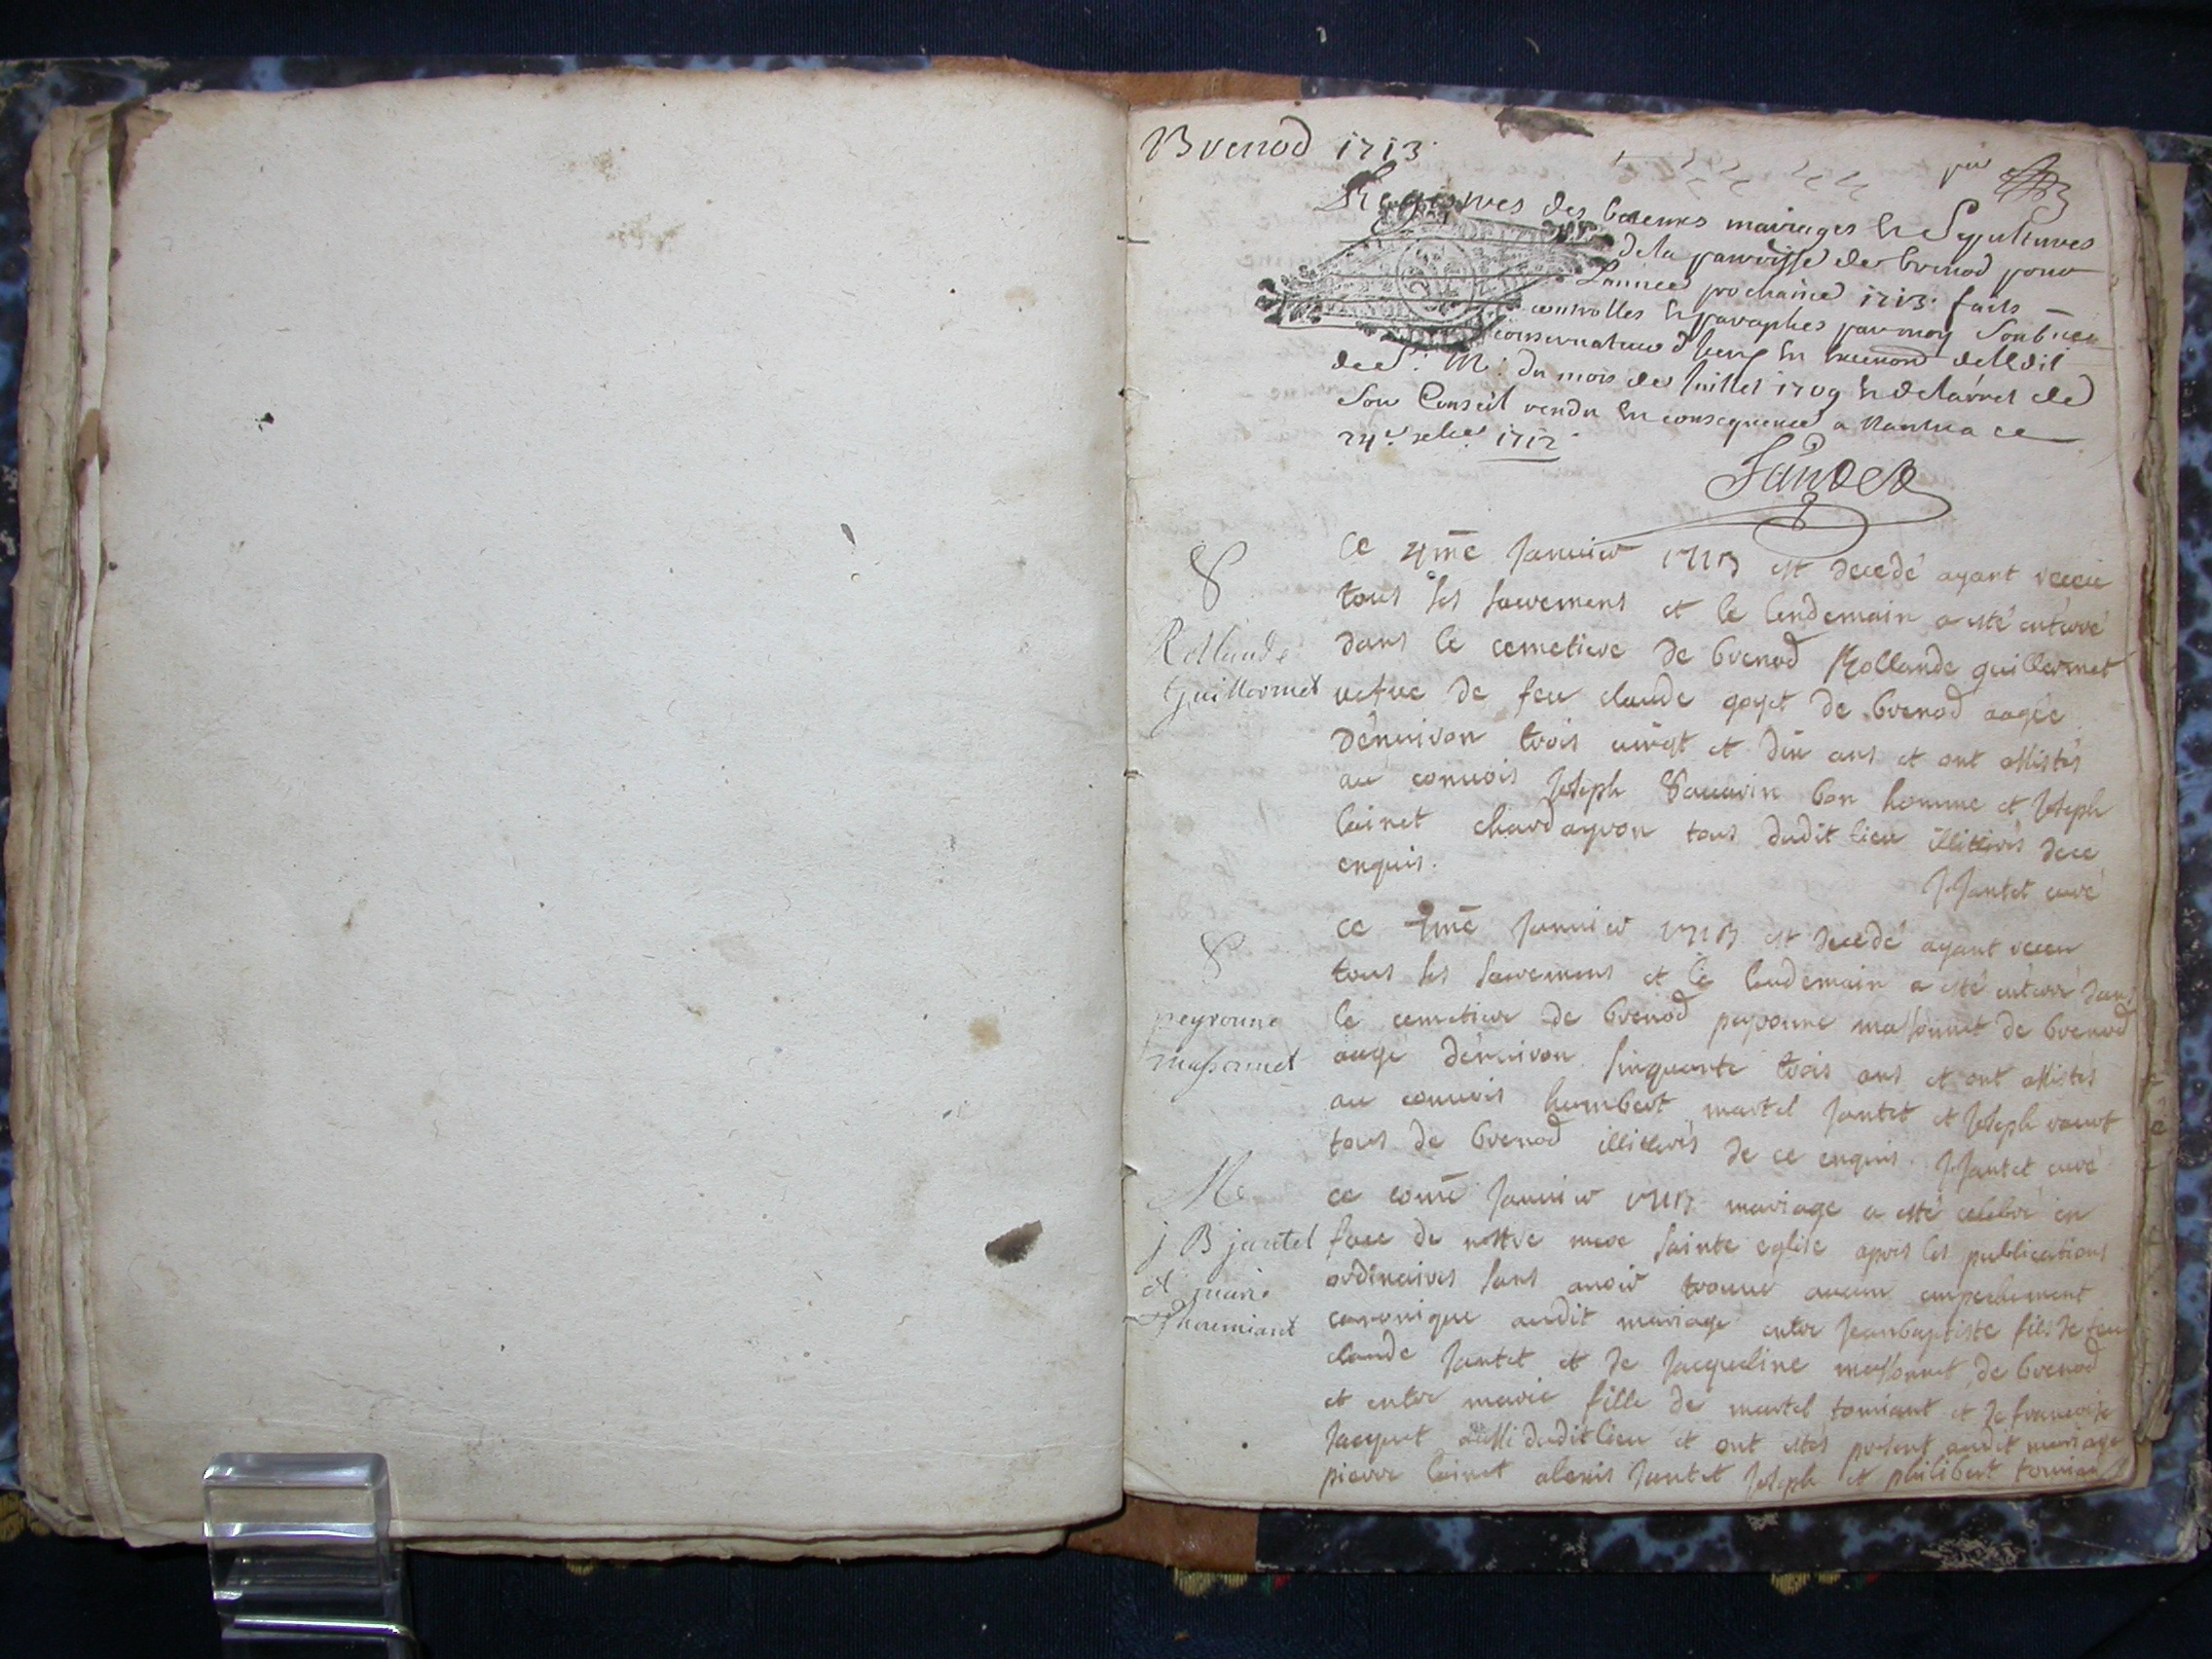 Brenod 1713.
Registres des batemes mariages et Sepultures
de la parroisse de brenod pour
L'annee prochaine 1713. faits
controlles et paraphes par moy
conservateur
de S. M. du mois de Juillet 1709 et de l'arrest de
Son Conseil rendu en consequence a Nantua ce
1712
S
Rollande
Guillermet
Ce 4me Januier 1713 est decedé ayant receu
tous ses sacremens et le lendemain a esté enterré
dans le cemetiere de brenod Rollande guillermet
uefue de feu claude goyet de brenod aagée
d'enuiron trois uingt et dix ans et ont assistés
au conuois Joseph bon homme et Joseph
Cairet chardayron tous dudit lieu illitterés de ce
enquis.
J. Jantet curé
S
peyronne
massonnet
ce 7me Januier 1713 est decedé ayant receu
tous ses sacremens et le lendemain a esté enterré dans
le cemetiere de brenod peyronne massonnet de brenod
aagé d'enuiron sinquante trois ans et ont assistés
au conuois humbert martel Jantet et Joseph
tous de brenod illitterés de ce enquis. J. Jantet curé
M
j B jantet
et marie
ce Januier 1713 mariage a esté celebré en
face de nostre mere sainte eglise apres les publications
ordinaires sans auoir trouué aucun empechement
canonique audit mariage entre Jeanbaptiste fils de feu
claude Jantet et de Jacqueline massonnet de brenod
et entre marie fille de martel tomiant et de francoise
Jacquet aussi dudit lieu et ont estés present audit mariage
pierre Cairet alexis Jantet Joseph et philibert